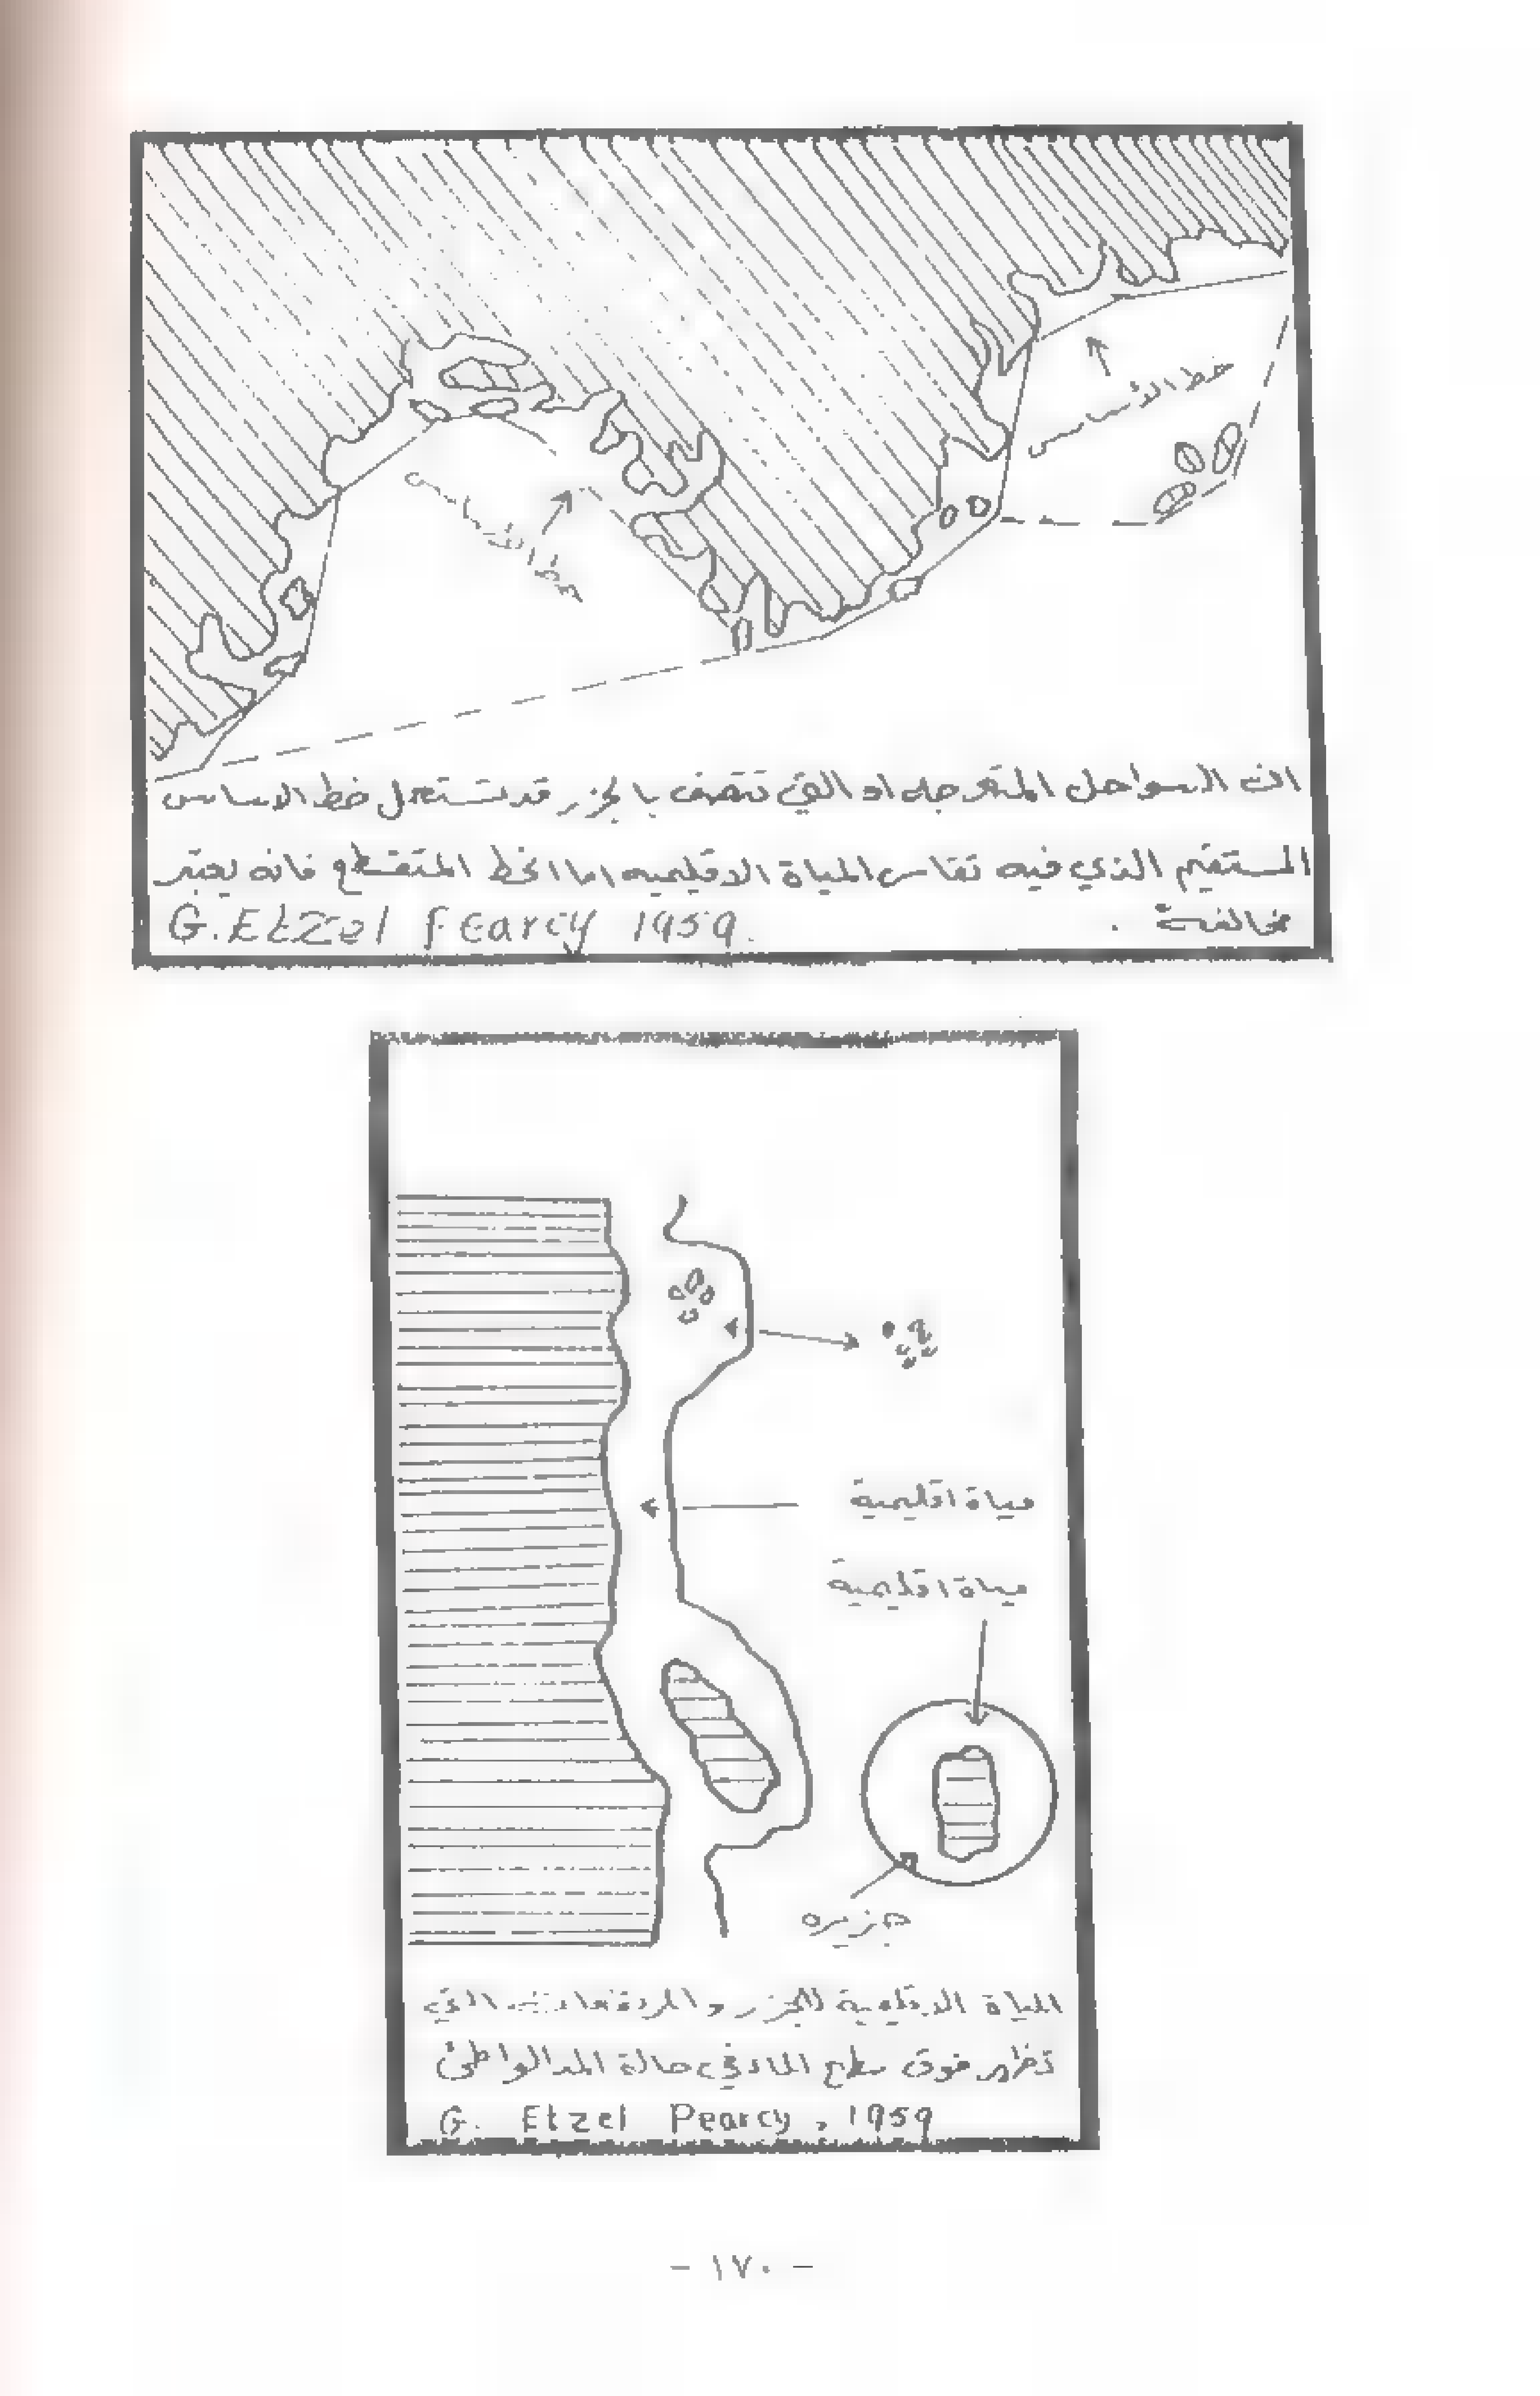 خط الأساس
خط الأساس
ان السواحل المتعرجه او التي تتصف بالجزر قد تستعمل خط الاساس
المستقيم الذي فيه تقاس المياة الاقليميه اما الخط المتقطع فانه يعتبر
مخالفة .
G. Etzel Pearcy 1959.
مياة اقليمية
مياة اقليمية
جزيره
المياة الاقليمية للجزر و المرتفعات التي
تظهر فوق سطح الماء في حالة المد الواطئ
G. Etzel Pearcy , 1959
- ١٧٠ -